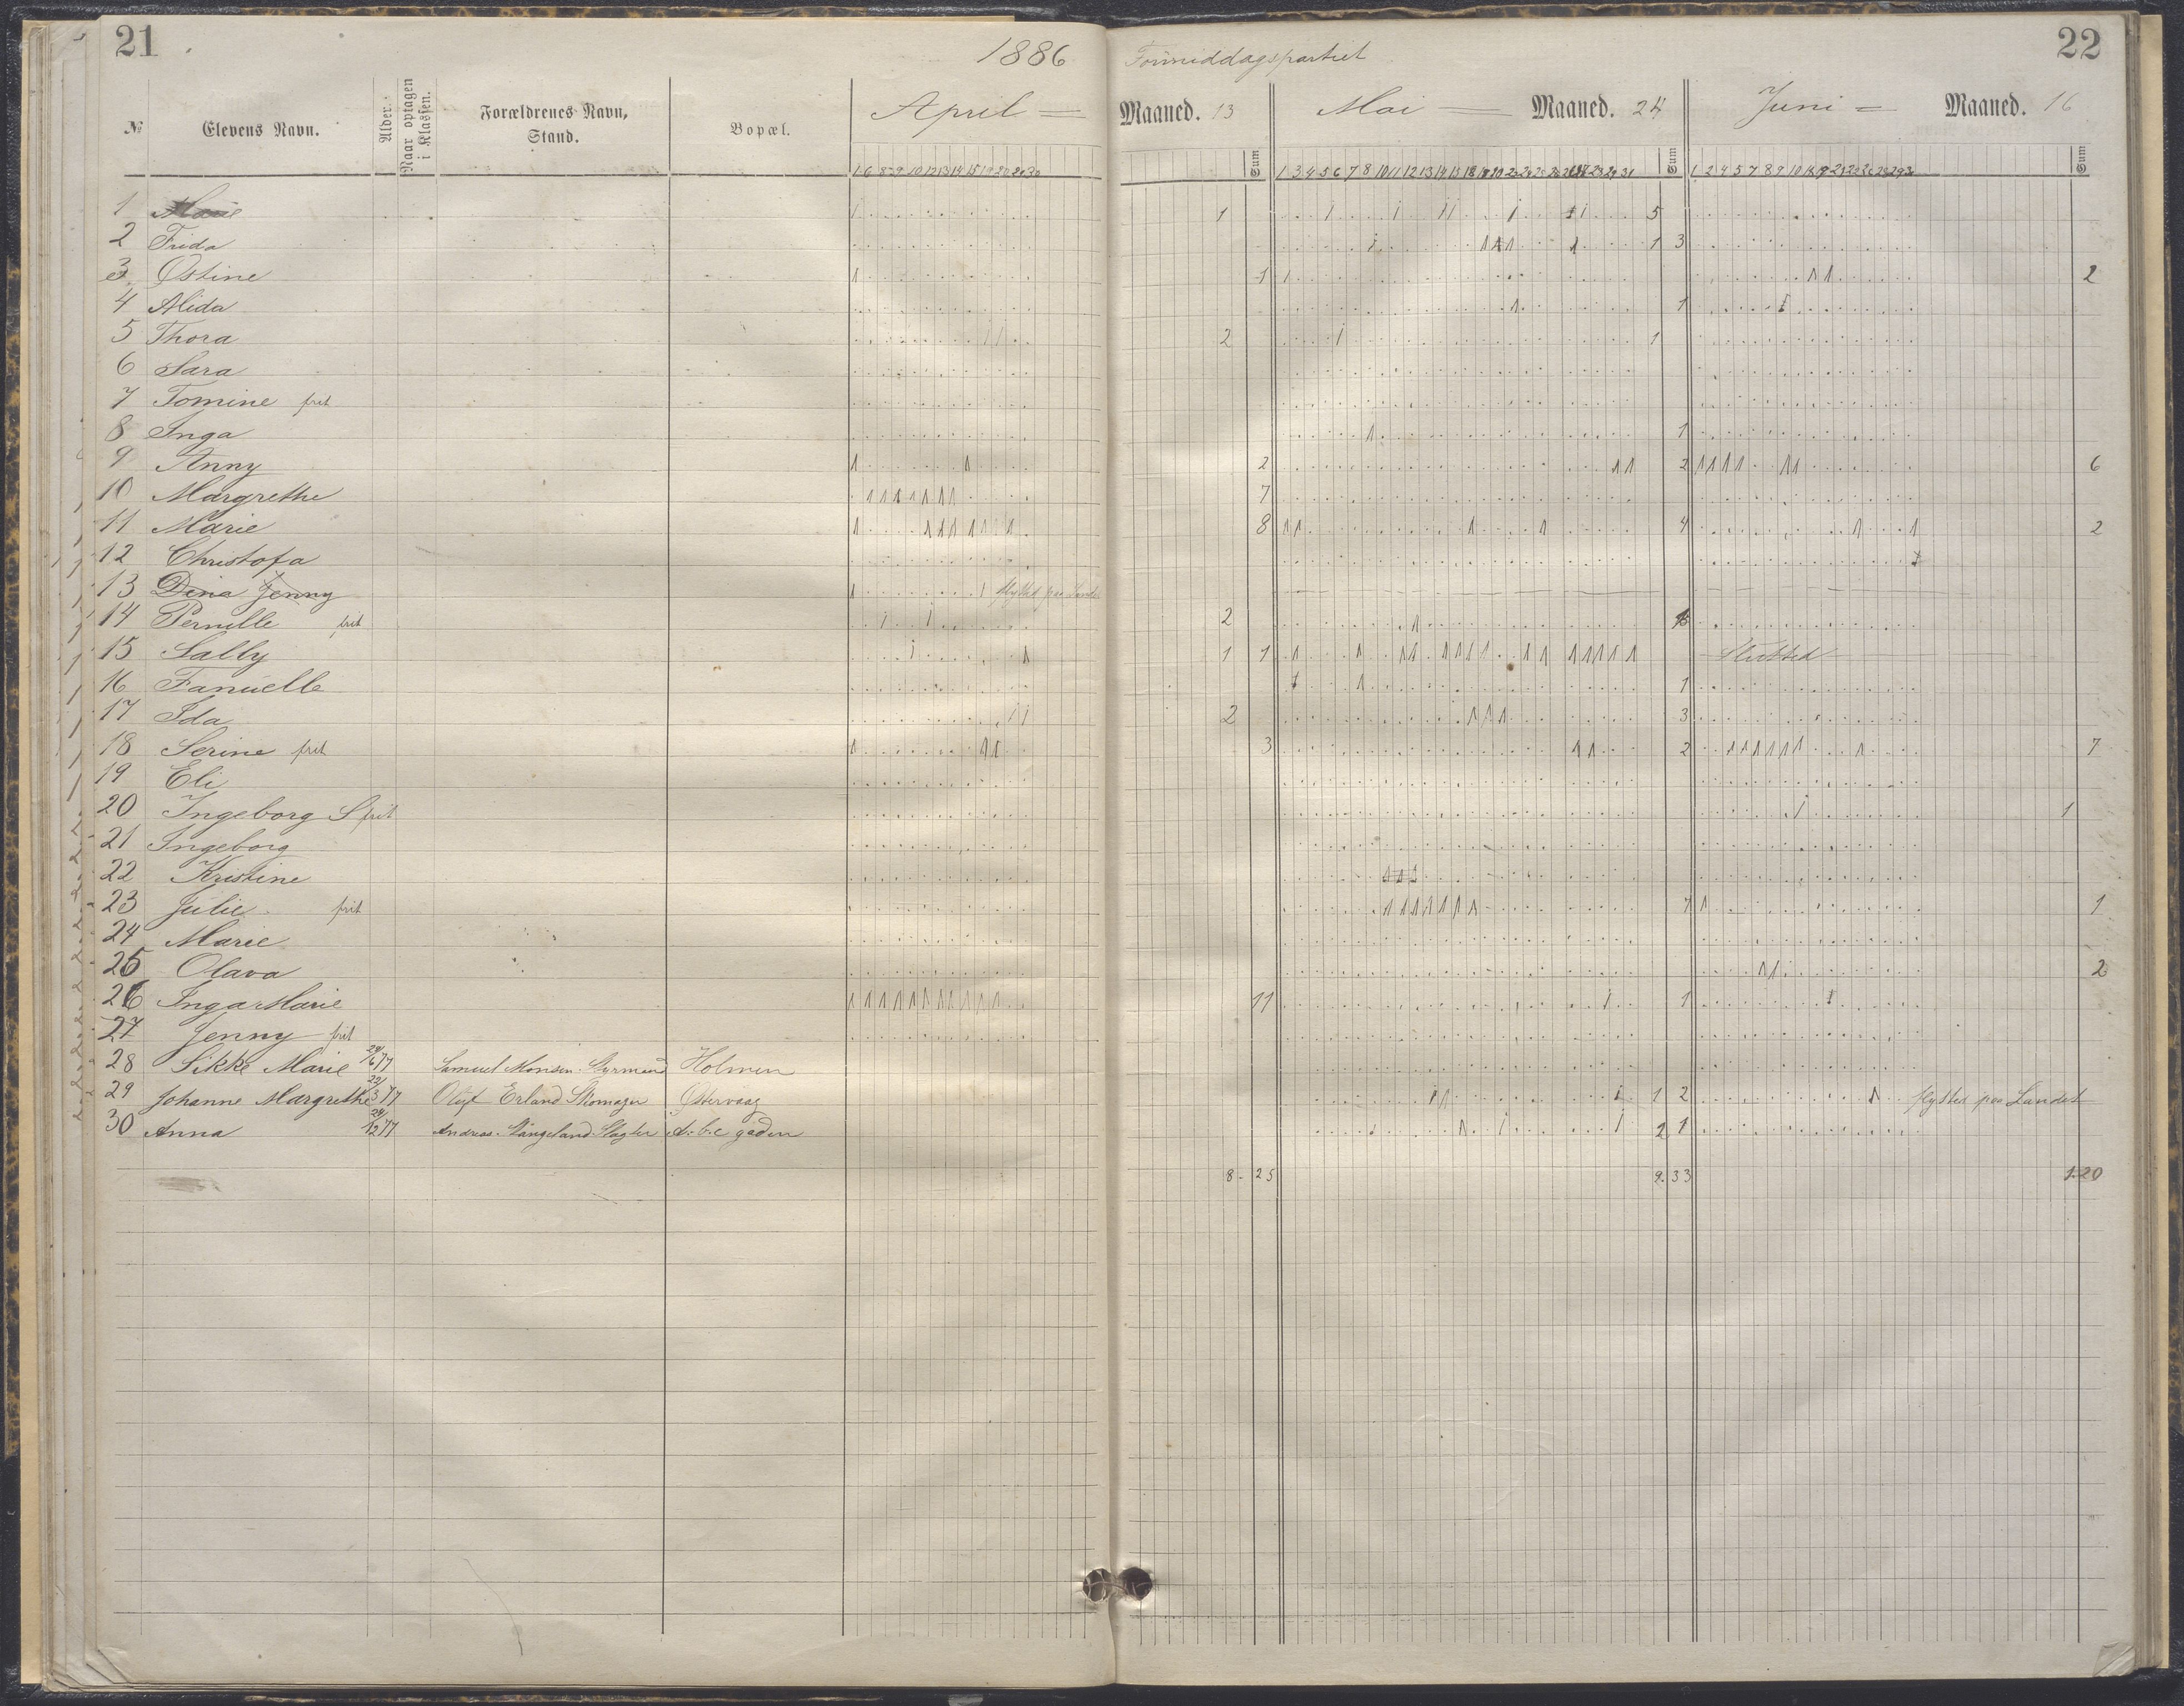 21
1886
Formiddagspartiet
22
№ Elevens Navn. Alder. Naar optagen i Klassen. Forældrenes Navn, Stand. Bopæl. April Maaned. 13 Mai Maaned. 24 Juni Maaned. 16
Sum Sum Sum
1 Marie 1 5
2 Frida 1 3
3 Østine 1 2
4 Alida 1
5 Thora 2 1
6 Sara
7 Tomine frit
8 Inga 1
9 Anny 2 2 6
10 Margrethe 7
11 Marie 8 4 2
12 Christofa
13 Dina Jenny flytted paa Landet
14 Pernille frit 2
15 Sally 1 1 Slutted
16 Fanuelle 1
17 Ida 2 3
18 Serine frit 3 2 7
19 Eli
20 Ingeborg S frit 1
21 Ingeborg
22 Kristine
23 Julie frit 7 1
24 Marie
25 Olava 2
26 Inga Marie 11 1
27 Jenny frit
28 Sikke Marie 29/6 77 Samuel Monsen Styrmand Holmen
29 Johanne Margrethe 22/3 77 Oluf Erland Skomager Østervaag 1 2 flytted paa Landet
30 Anna 24/12 77 Andreas Stangeland Slagter A.b.c gaden 2 1
8 - 25 9. 33 1.20